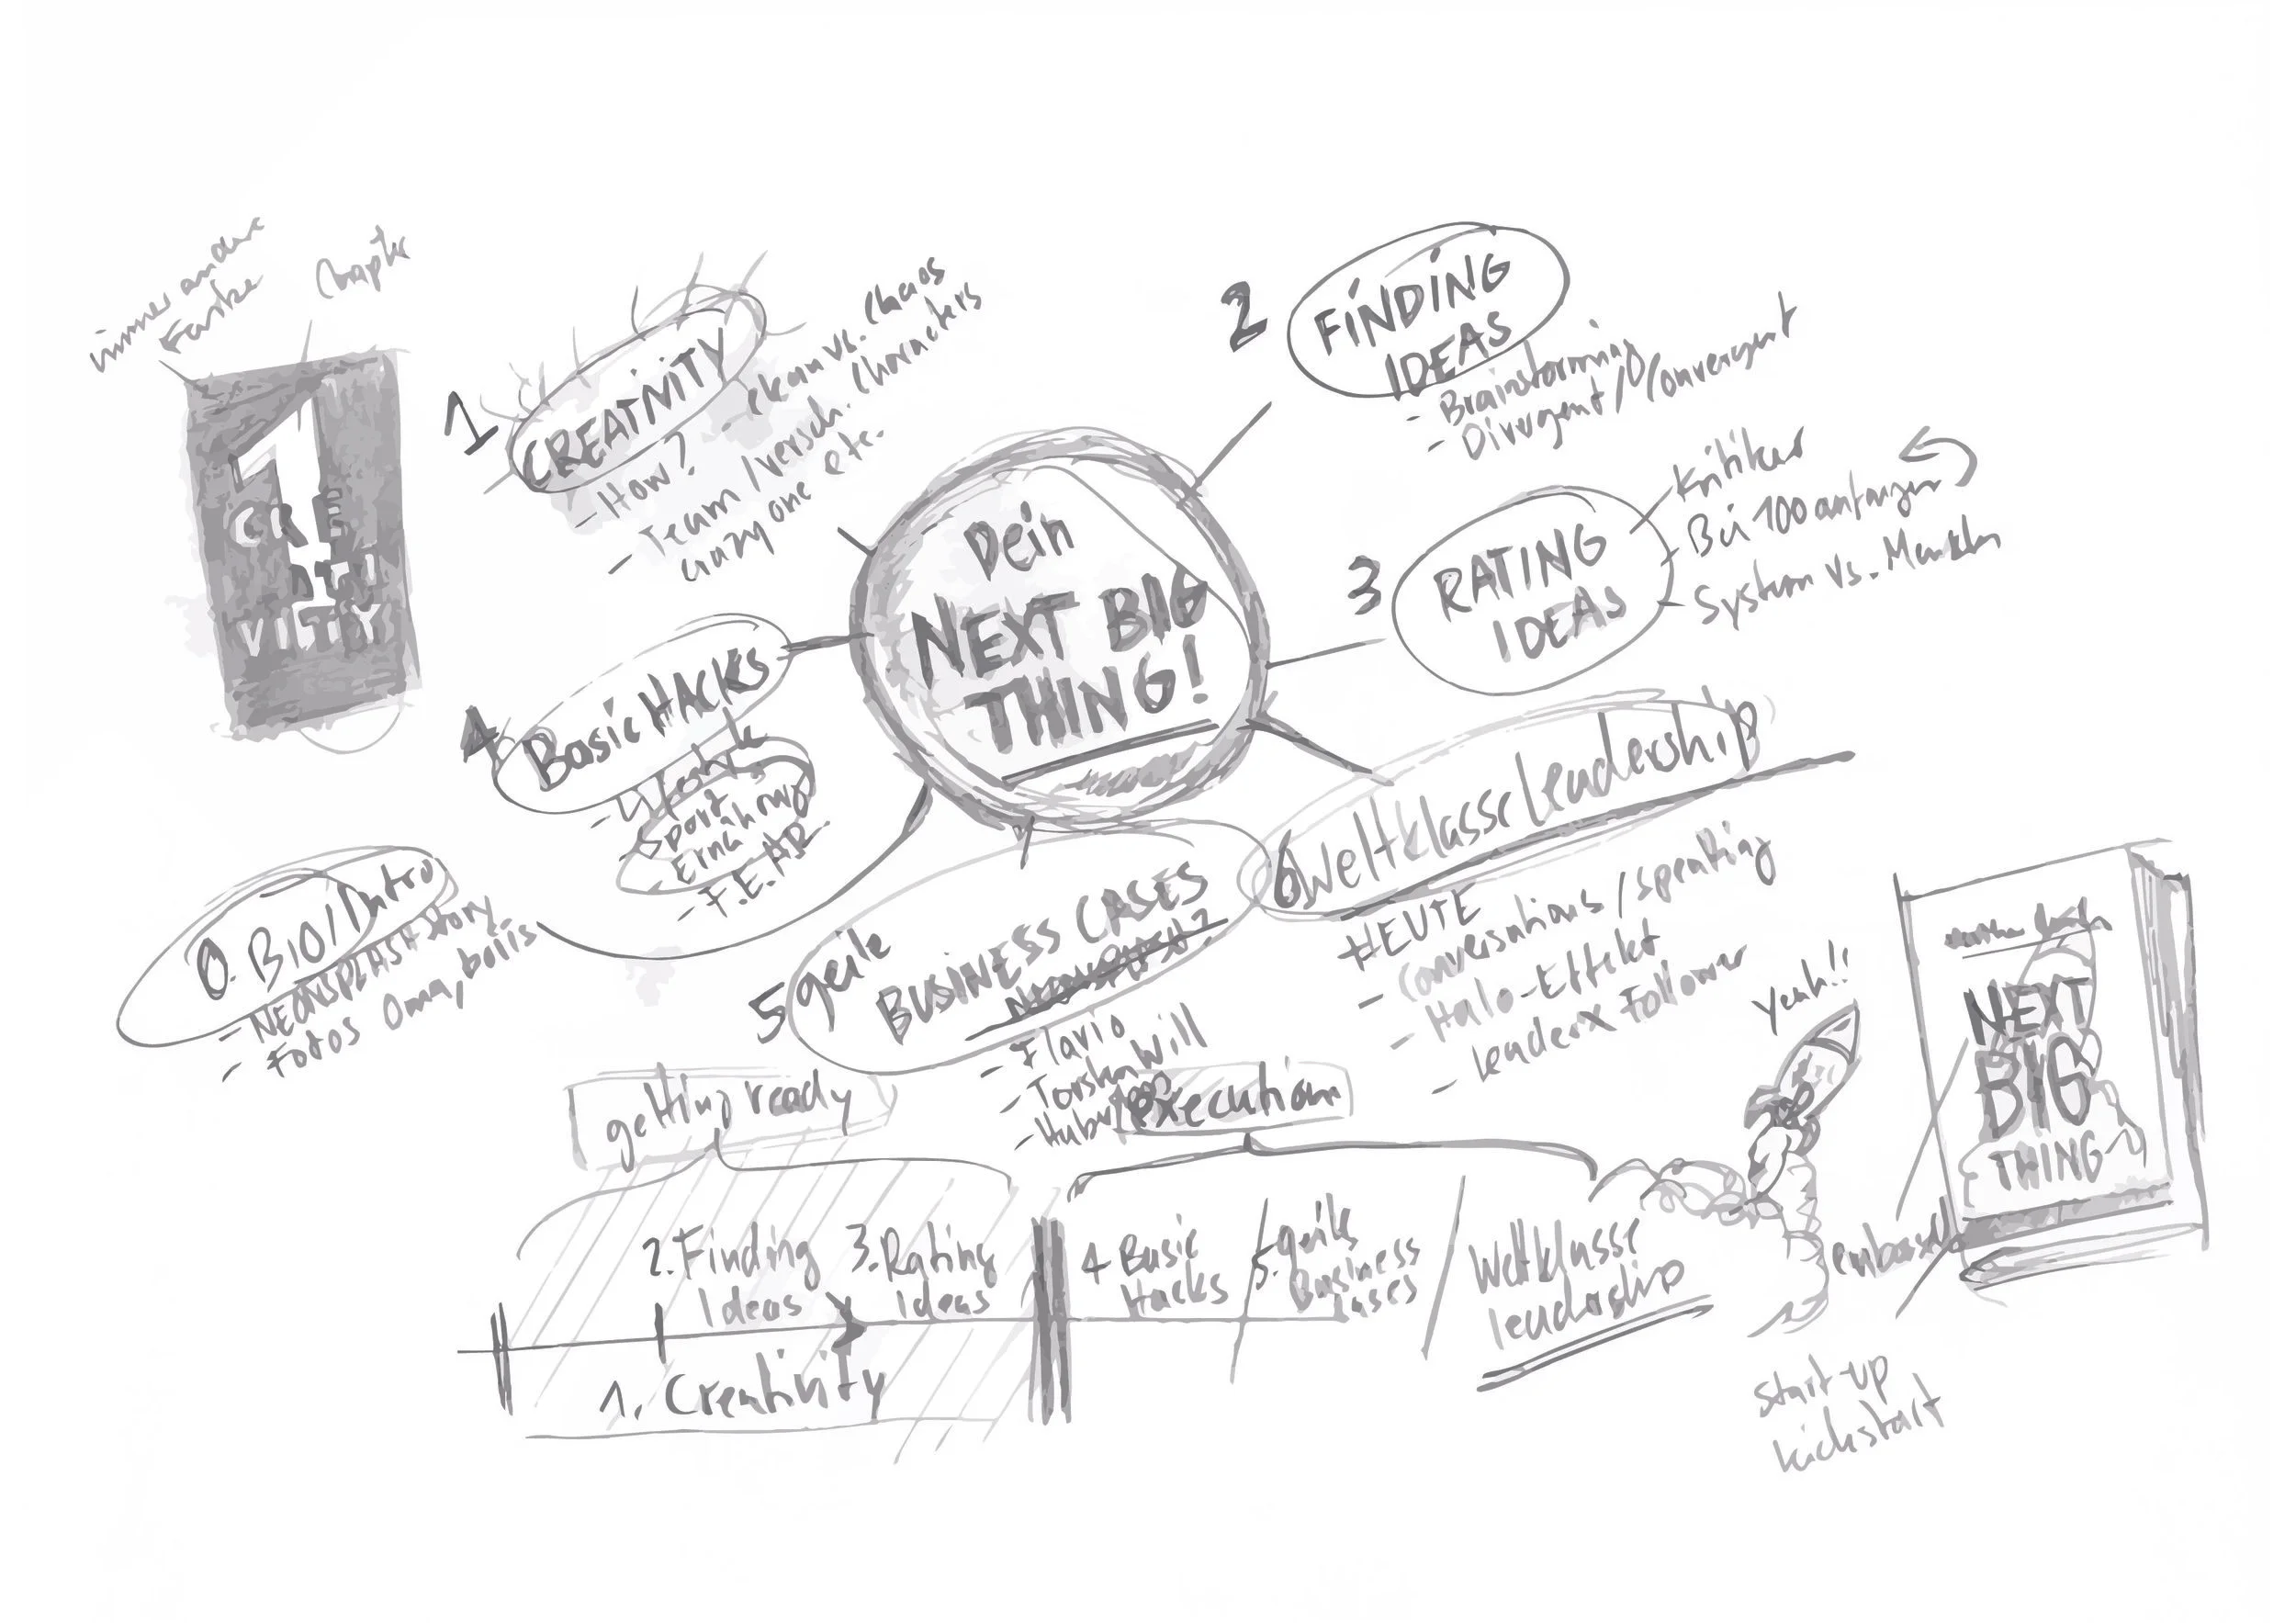 immer andere
Farbe
Chapter
1
CRE
ATI
VITTY
1
CREATIVITY
- How?
- Team / versch. Characters
crazy one etc.
vs. Chaos
2
FINDING
IDEAS
- Brainstorming
- Divergent / Convergent
3
RATING
IDEAS
Kritiker
Bei 100 anfangen
System vs.
Dein
NEXT BIG
THING!
4
Basic HACKS
- Lifestyle
Sport
Ernährung
- F.E.AR
0. BIO/Intro
- NEONSPLASH-Story
- Fotos Oma,
5 geile
BUSINESS CASES
NEONSPLASH?
- Flavio
- Torsten Will
6 Weltklasse Leadership
HEUTE
- Conversations / speaking
- Halo-Effekt
- Leader x Follower
getting ready
Execution
2. Finding
Ideas
3. Rating
Ideas
1. Creativity
4 Basic
Hacks
5. geile
Business
Cases
Weltklasse
leadership
Yeah!!
NEXT
BIG
THING
start-up
kickstart